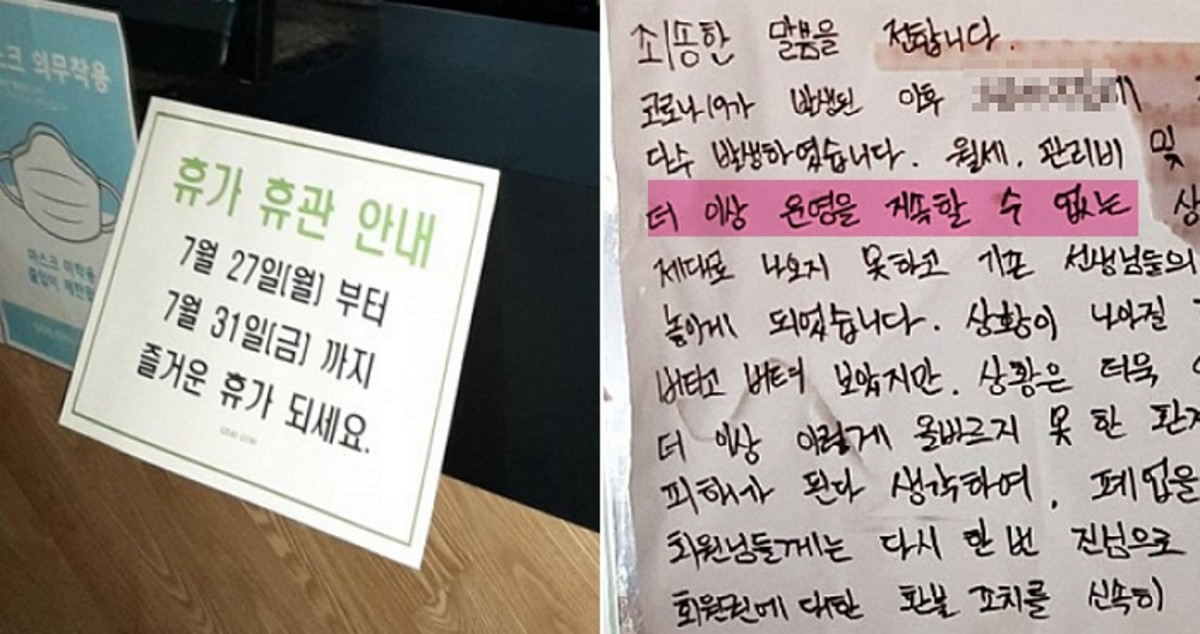 스크 의무착용
휴가 휴관 안내
7월 27일(월) 부터
7월 31일(금) 까지
즐거운 휴가 되세요.
죄송한 말씀을 전합니다.
코로나19가 발생된 이후
다수 발생하였습니다. 월세, 관리비 및
더 이상 운영을 지속할 수 없는 상
제대로 나오지 못하고 기존 선생님들의
놓이게 되었습니다. 상황이 나아질
버티고 버텨 보았지만, 상황은 더욱
더 이상 이렇게 올바르지 못 한 환
피해가 된다 생각하여, 폐업을
회원님들께는 다시 한 번 진심으로
회원권에 대한 환불 조치를 신속히